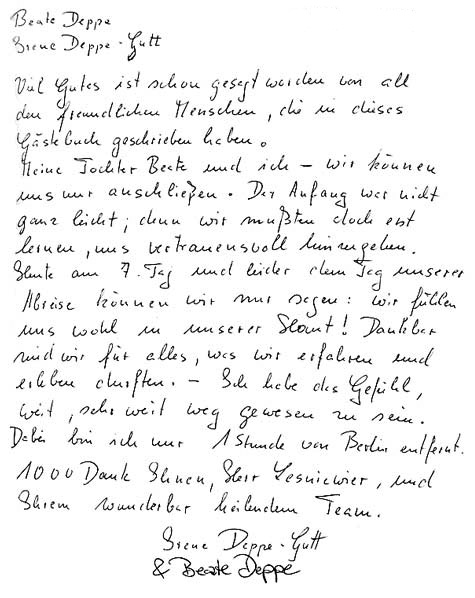 Beate Deppe
Irene Deppe-Gutt
Viel Gutes ist schon gesagt worden von all
den freundlichen Menschen, die in dieses
Gästebuch geschrieben haben.
Meine Tochter Beate und ich – wir können
uns nur anschließen. Der Anfang war nicht
ganz leicht; denn wir mußten doch erst
lernen, uns vertrauensvoll hinzugeben.
Heute am 7. Tag und leider dem Tag unserer
Abreise können wir nur sagen: wir fühlen
uns wohl in unserer Haut! Dankbar
sind wir für alles, was wir erfahren und
erleben durften. – Ich habe das Gefühl,
weit, sehr weit weg gewesen zu sein.
Dabei bin ich nur 1 Stunde von Berlin entfernt.
1000 Dank Ihnen, Herr und
Ihrem wunderbar heilendem Team.
Irene Deppe-Gutt
& Beate Deppe